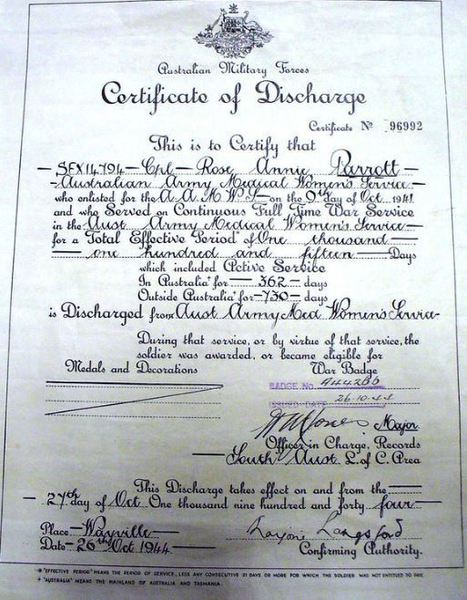 Australian Military Forces
Certificate of Discharge
Certificate No 96992
This is to Certify that
SFX14794 – Cpl – Rose Annie Parrott
Australian Army Medical Women's Service
who enlisted for the A.A.M.W.S. on the 9th day of Oct 1941
and who Served on Continuous Full Time War Service
in the Aust Army Medical Women's Service
for a Total Effective Period* of One thousand
one hundred and fifteen Days
which included Active Service
In Australia+ for – 362 – days
Outside Australia+ for – 730 – days
is Discharged from Aust Army Med Women's Service
During that service, or by virtue of that service, the
soldier was awarded, or became eligible for
Medals and Decorations War Badge
BADGE No. A44200
ISSUED DATE 26.10.44
Major
Officer in Charge, Records
South Aust L. of C. Area
This Discharge takes effect on and from the
27th day of Oct One thousand nine hundred and forty four
Place Wayville
Date 26th Oct 1944
Confirming Authority.
* "EFFECTIVE PERIOD" MEANS THE PERIOD OF SERVICE, LESS ANY CONSECUTIVE 21 DAYS OR MORE FOR WHICH THE SOLDIER WAS NOT ENTITLED TO PAY.
+ "AUSTRALIA" MEANS THE MAINLAND OF AUSTRALIA AND TASMANIA.